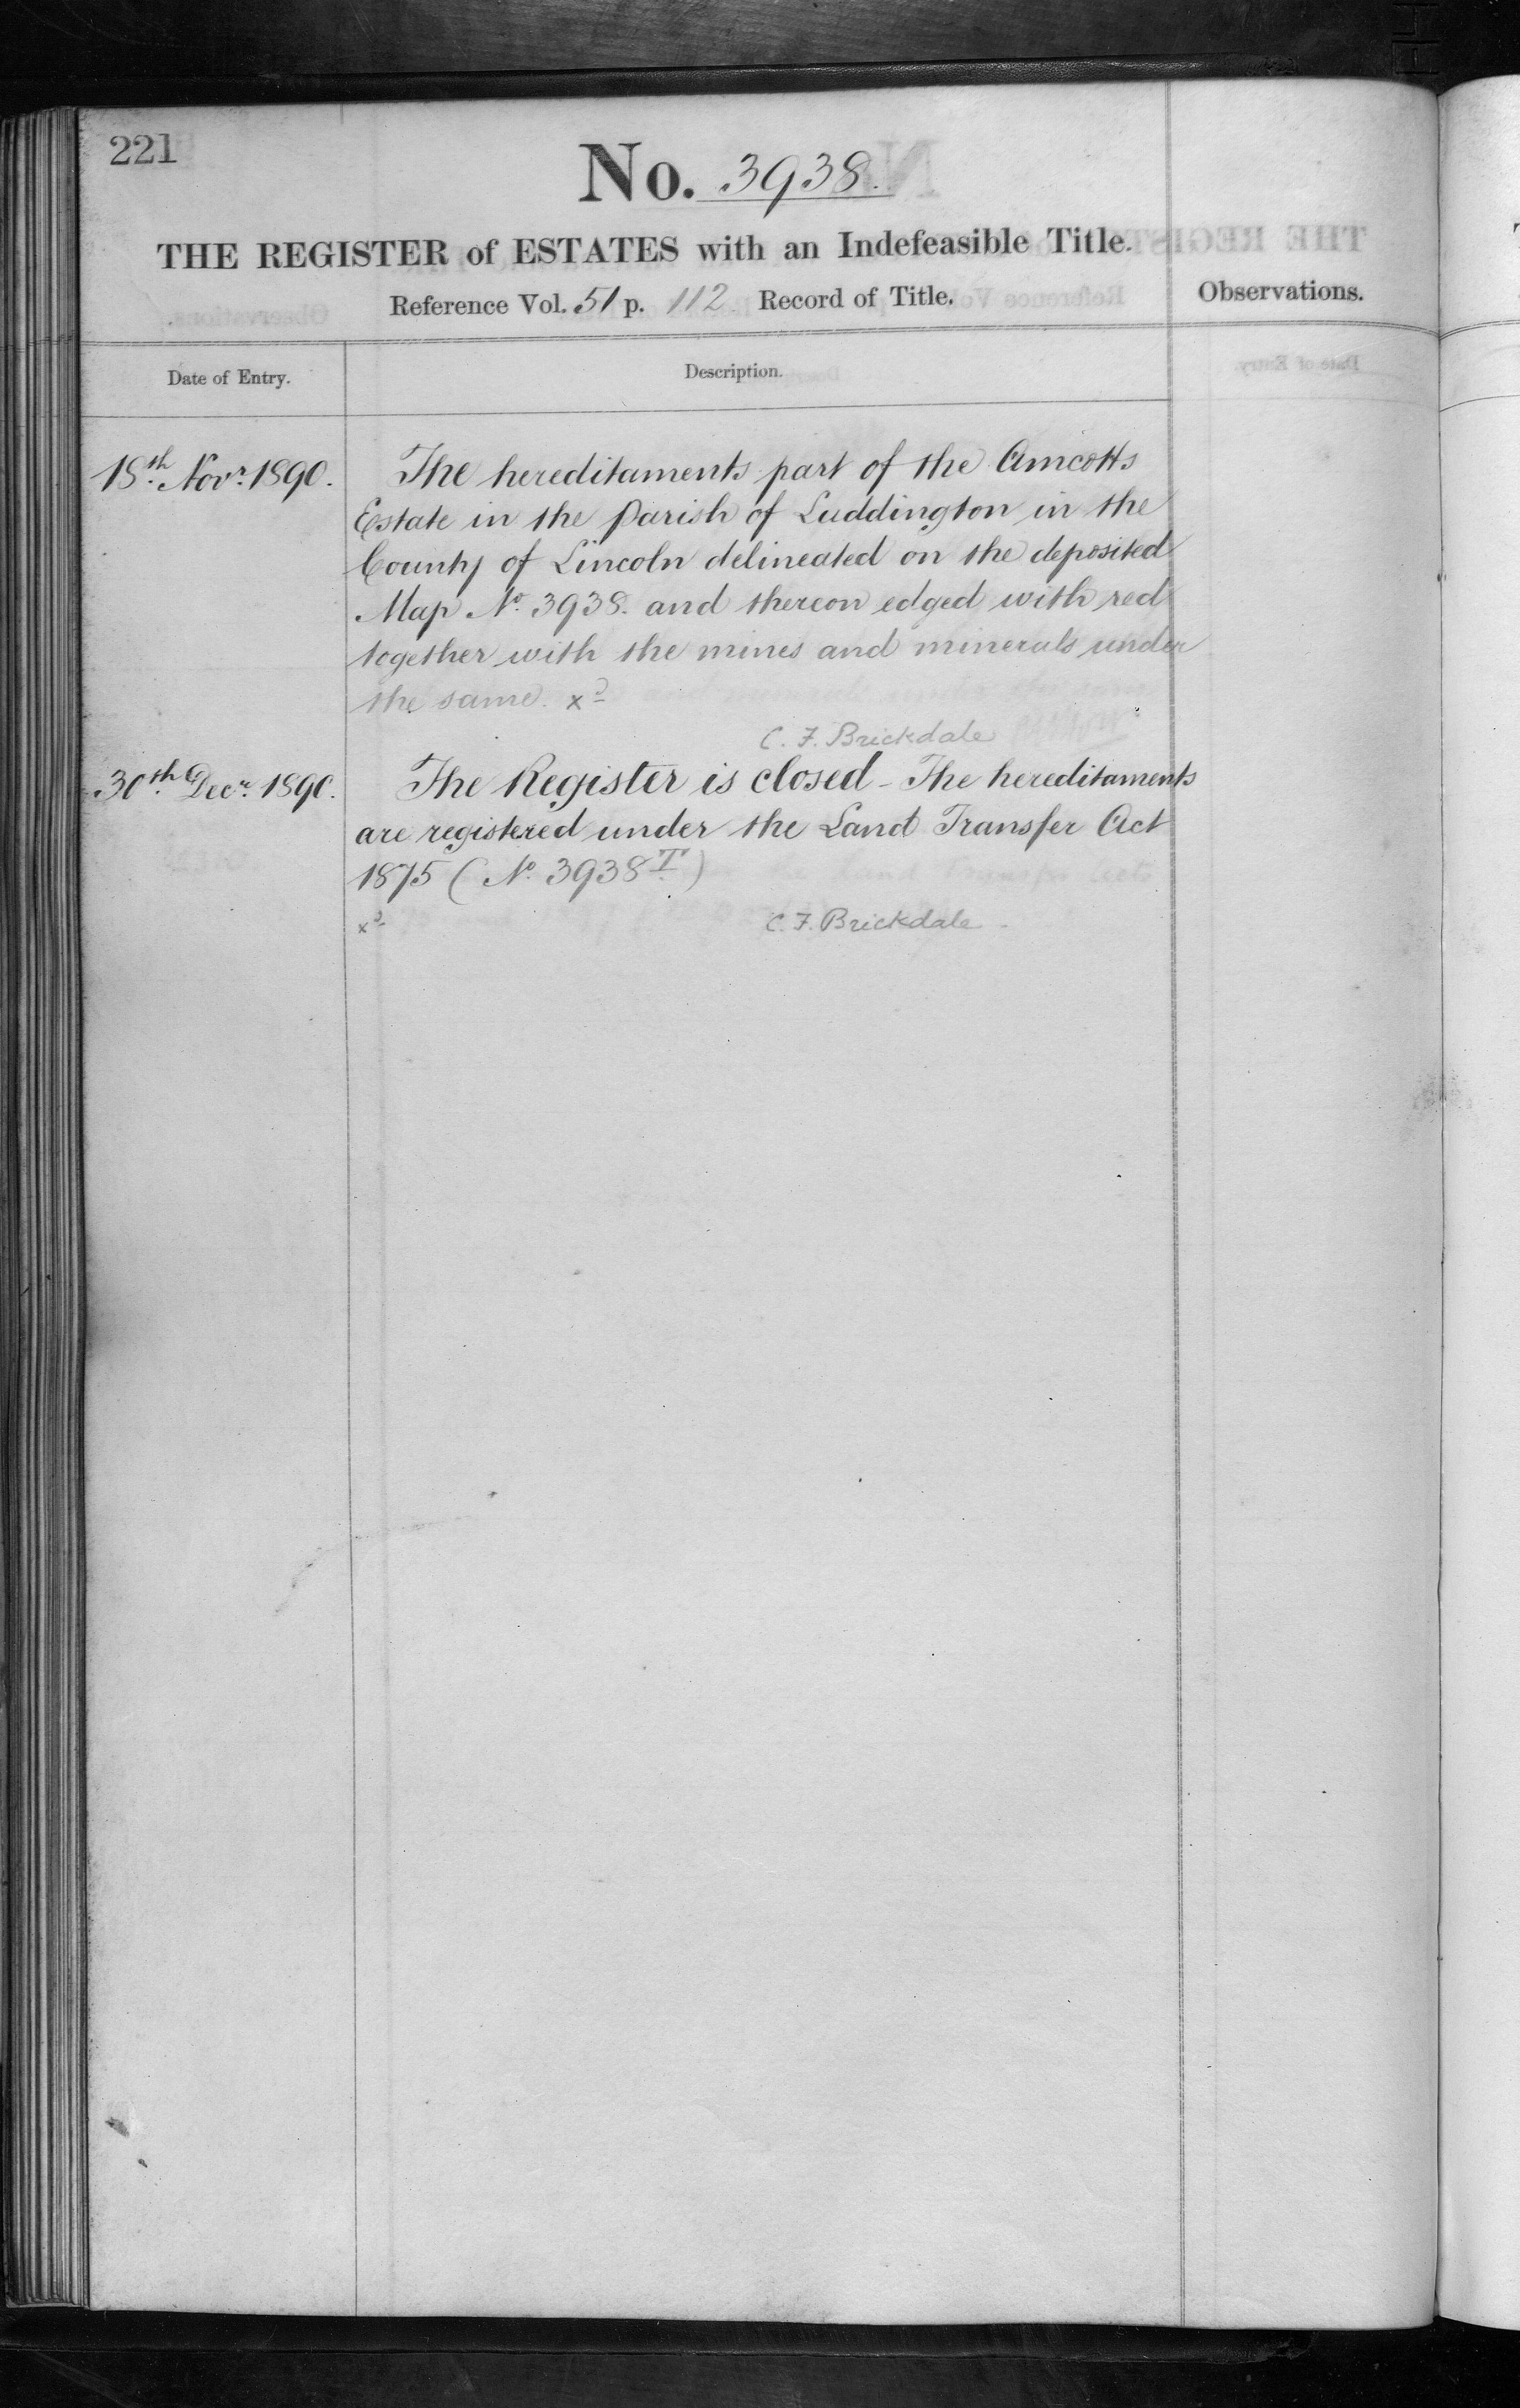 221
No. 3938.
THE REGISTER of ESTATES with an Indefeasible Title.
Reference Vol. 51 p. 112. Record of Title.
Observations.
Date of Entry.
Description.
18th. Novr. 1890.
The hereditaments part of the Amcotts
Estate in the Parish of Luddington in the
County of Lincoln delineated on the deposited
Map No. 3938. and thereon edged with red
together with the mines and minerals under
the same. xd
C. F. Brickdale
30th. Decr. 1890.
The Register is closed - The hereditaments
are registered under the Land Transfer Act
1875 (No. 3938 T)
xd
C. F. Brickdale